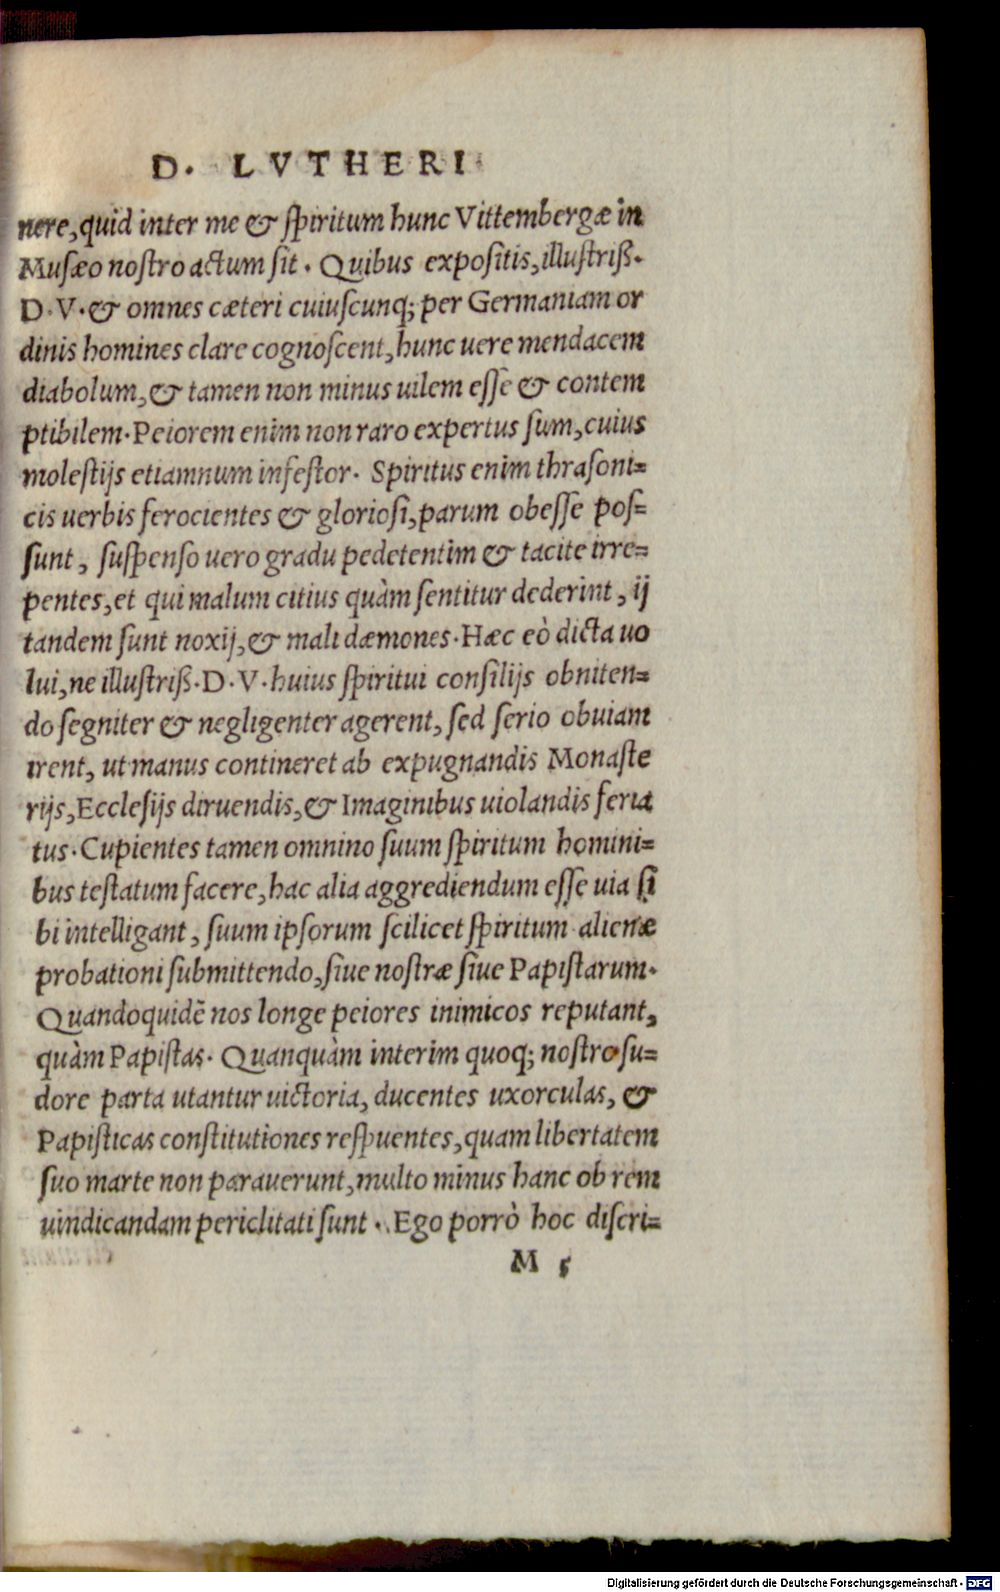 D. LVTHERI
nere, quid inter me & ſpiritum hunc Vittembergæ in
Muſæo noſtro actum ſit. Quibus expoſitis, illuſtriß.
D.V. & omnes cæteri cuiuſcunq; per Germaniam or
dinis homines clare cognoſcent, hunc uere mendacem
diabolum, & tamen non minus uilem eſſe & contem
ptibilem. Peiorem enim non raro expertus ſum, cuius
moleſtijs etiamnum infeſtor. Spiritus enim thraſoni=
cis uerbis ferocientes & glorioſi, parum obeſſe poſ=
ſunt, ſuſpenſo uero gradu pedetentim & tacite irre=
pentes, et qui malum citius quàm ſentitur dederint, ij
tandem ſunt noxij, & mali dæmones. Hæc eò dicta uo
lui, ne illuſtriß. D.V. huius ſpiritui conſilijs obniten=
do ſegniter & negligenter agerent, ſed ſerio obuiam
irent, ut manus contineret ab expugnandis Monaſte
rijs, Eccleſijs diruendis, & Imaginibus uiolandis feria
tus. Cupientes tamen omnino ſuum ſpiritum homini=
bus teſtatum facere, hac alia aggrediendum eſſe uia ſi
bi intelligant, ſuum ipſorum ſcilicet ſpiritum alienæ
probationi ſubmittendo, ſiue noſtræ ſiue Papiſtarum.
Quandoquidẽ nos longe peiores inimicos reputant,
quàm Papiſtas. Quanquàm interim quoq; noſtro ſu=
dore parta utantur uictoria, ducentes uxorculas, &
Papiſticas conſtitutiones reſpuentes, quam libertatem
ſuo marte non parauerunt, multo minus hanc ob rem
uindicandam periclitati ſunt. Ego porrò hoc diſcri=
M 5
Digitalisierung gefördert durch die Deutsche Forschungsgemeinschaft - DFG